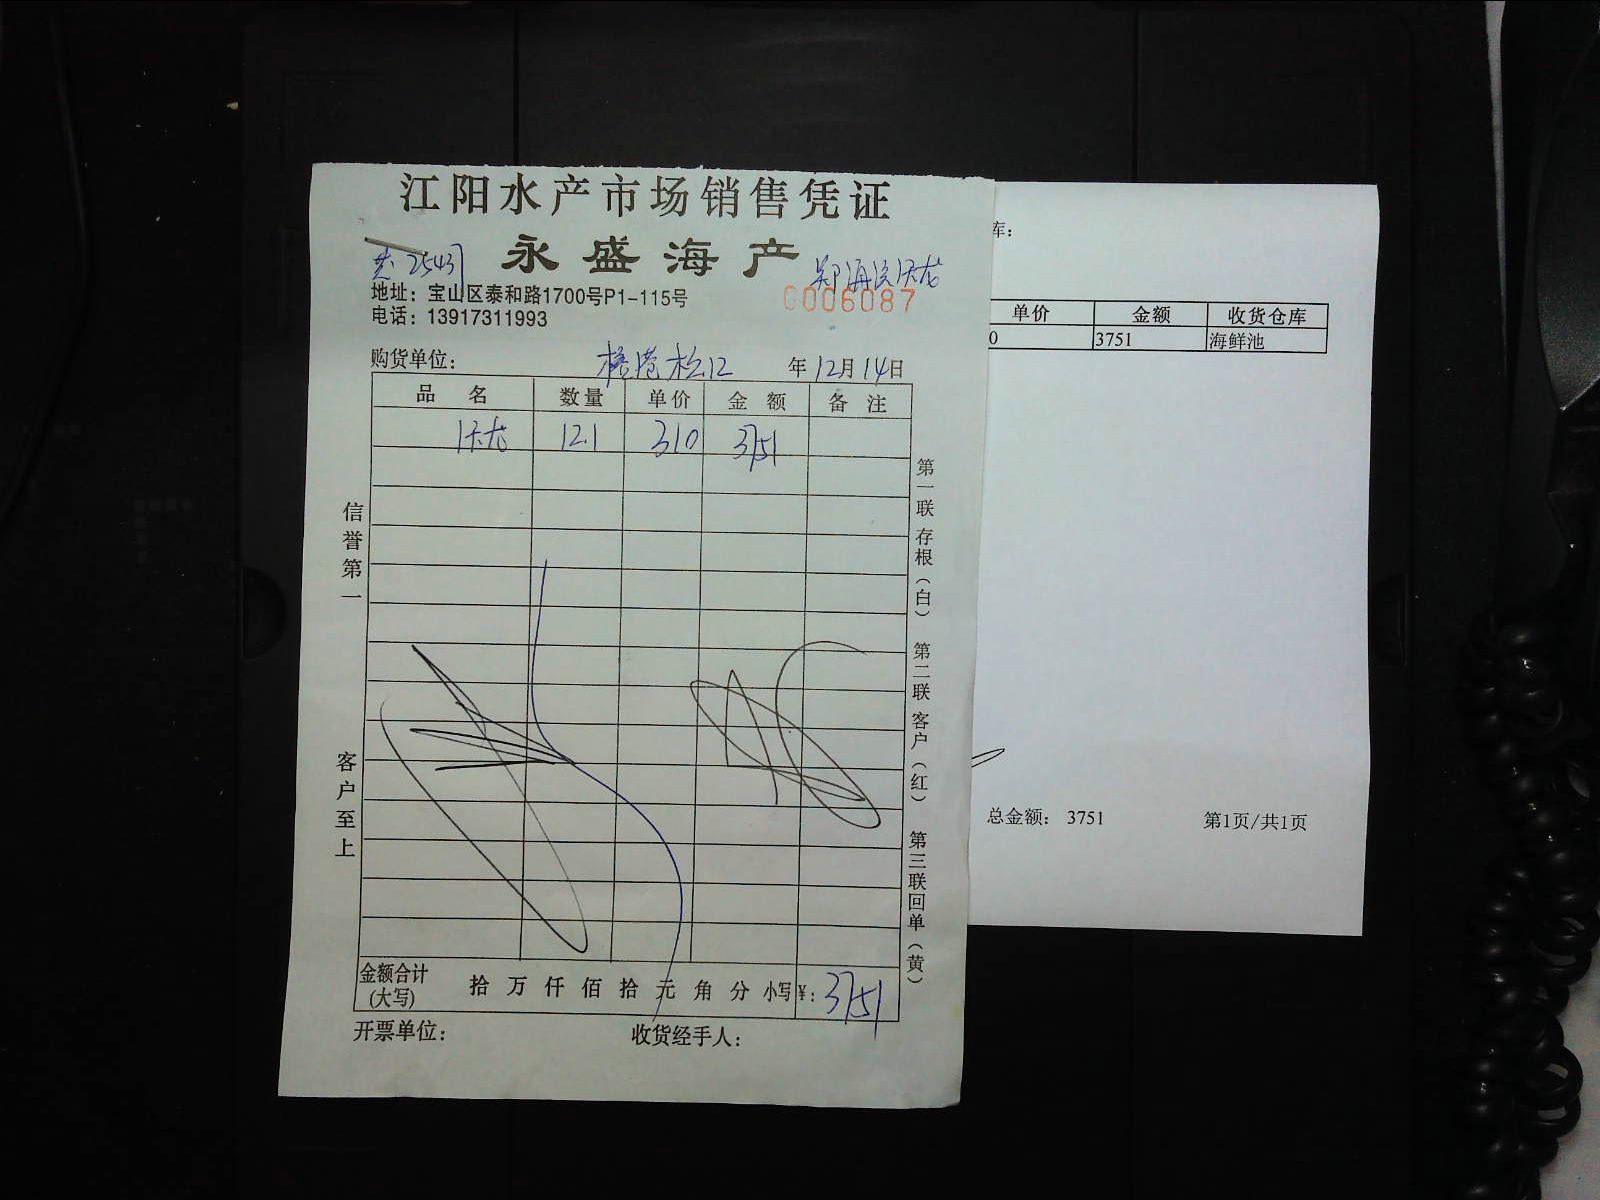 江阳水产市场销售凭证
永盛海产
共 2543
郑海民沃龙
地址：宝山区泰和路1700号P1-115号
0006087
电话：13917311993
购货单位： 松江 年 12月 14日
品 名 数量 单价 金 额 备 注
沃龙 12.1 310 3751
信誉第一
客户至上
第一联 存根（白） 第二联 客户（红） 第三联 回单（黄）
金额合计（大写） 拾 万 仟 佰 拾 元 角 分 小写￥：3751
开票单位： 收货经手人：
库：
单价 金额 收货仓库
0 3751 海鲜池
总金额： 3751 第1页/共1页